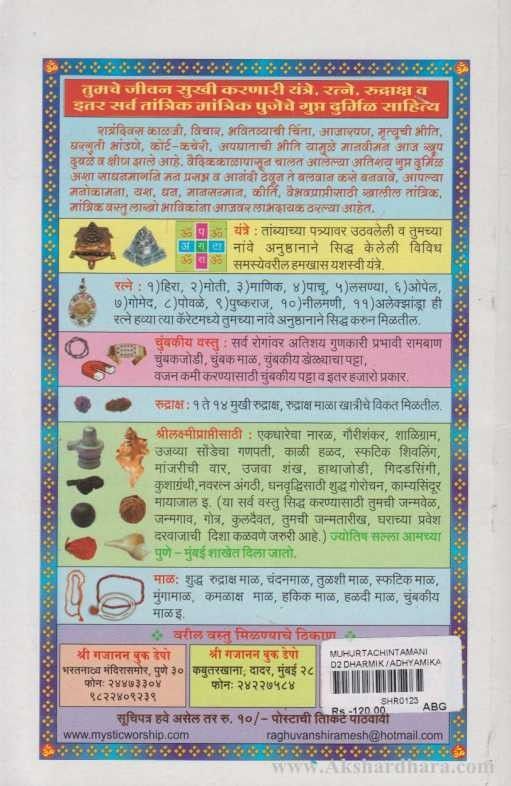 तुमचे जीवन सुखी करणारी यंत्रे, रत्ने, रुद्राक्ष व
इतर सर्व तांत्रिक मांत्रिक पुजेचे गुप्त दुर्मिळ साहित्य
रात्रंदिवस काळजी, विचार, भवितव्याची चिंता, आजारपण, मृत्यूची भीति,
घरगुती भांडणे, कोर्ट-कचेरी, अपघाताची भीति यामुळे मानवीमन आज खूप
दुबळे व क्षीण झाले आहे. वैदिककाळापासून चालत आलेल्या अतिशय गुप्त दुर्मिळ
अशा साधनमार्गाने मन प्रसन्न व आनंदी ठेवून ते बलवान कसे बनवावे, आपल्या
मनोकामना, यश, धन, मानसन्मान, कीर्ति, वैभवप्राप्तीसाठी खालील तांत्रिक,
मांत्रिक वस्तु लाखो भाविकांना आजवर लाभदायक ठरल्या आहेत.
यंत्रे : तांब्याच्या पत्र्यावर उठवलेली व तुमच्या
नांवे अनुष्ठानाने सिद्ध केलेली विविध
समस्येवरील हमखास यशस्वी यंत्रे.
रत्ने : १)हिरा, २)मोती, ३)माणिक, ४)पाचू, ५)लसण्या, ६)ओपेल,
७)गोमेद, ८)पोवळे, ९)पुष्कराज, १०)नीलमणी, ११)अलेक्झांड्रा ही
रत्ने हव्या त्या कॅरेटमध्ये तुमच्या नांवे अनुष्ठानाने सिद्ध करुन मिळतील.
चुंबकीय वस्तु : सर्व रोगांवर अतिशय गुणकारी प्रभावी रामबाण
चुंबकजोडी, चुंबक माळ, चुंबकीय खेळ्याचा पट्टा,
वजन कमी करण्यासाठी चुंबकीय पट्टा व इतर हजारो प्रकार.
रुद्राक्ष : १ ते १४ मुखी रुद्राक्ष, रुद्राक्ष माळा खात्रीचे विकत मिळतील.
श्रीलक्ष्मीप्राप्तीसाठी : एकधारेचा नारळ, गौरीशंकर, शाळिग्राम,
उजव्या सोंडेचा गणपती, काळी हळद, स्फटिक शिवलिंग,
मांजरीची वार, उजवा शंख, हाथाजोडी, गिदडसिंगी,
कुशाग्रंथी,नवरत्न अंगठी, धनवृद्धिसाठी शुद्ध गोरोचन, काम्यसिंदूर
मायाजाल इ. (या सर्व वस्तु सिद्ध करण्यासाठी तुमची जन्मवेळ,
जन्मगाव, गोत्र, कुलदैवत, तुमची जन्मतारीख, घराच्या प्रवेश
दरवाजाची दिशा कळवणे जरुरी आहे.) ज्योतिष सल्ला आमच्या
पुणे - मुंबई शाखेत दिला जातो.
माळ: शुद्ध रुद्राक्ष माळ, चंदनमाळ, तुळशी माळ, स्फटिक माळ,
मुंगामाळ, कमळाक्ष माळ, हकिक माळ, हळदी माळ, चुंबकीय
माळ इ.
वरील वस्तु मिळण्याचे ठिकाण
श्री गजानन बुक डेपो
भरतनाट्य मंदिरासमोर, पुणे ३०
फोनः २४४७३३०४
९८२२४०९२३९
श्री गजानन बुक डेपो
कबुतरखाना, दादर, मुंबई २८
फोनः २४२२७५८४
MUHURTACHINTAMANI
D2 DHARMIK / ADHYAMIKA
SHR0123
Rs.-120.00 ABG
सूचिपत्र हवे असेल तर रु. १०/- पोस्टाची तिकिटं पाठवावी
www.mysticworship.com raghuvanshiramesh@hotmail.com
www.Akshardhara.com